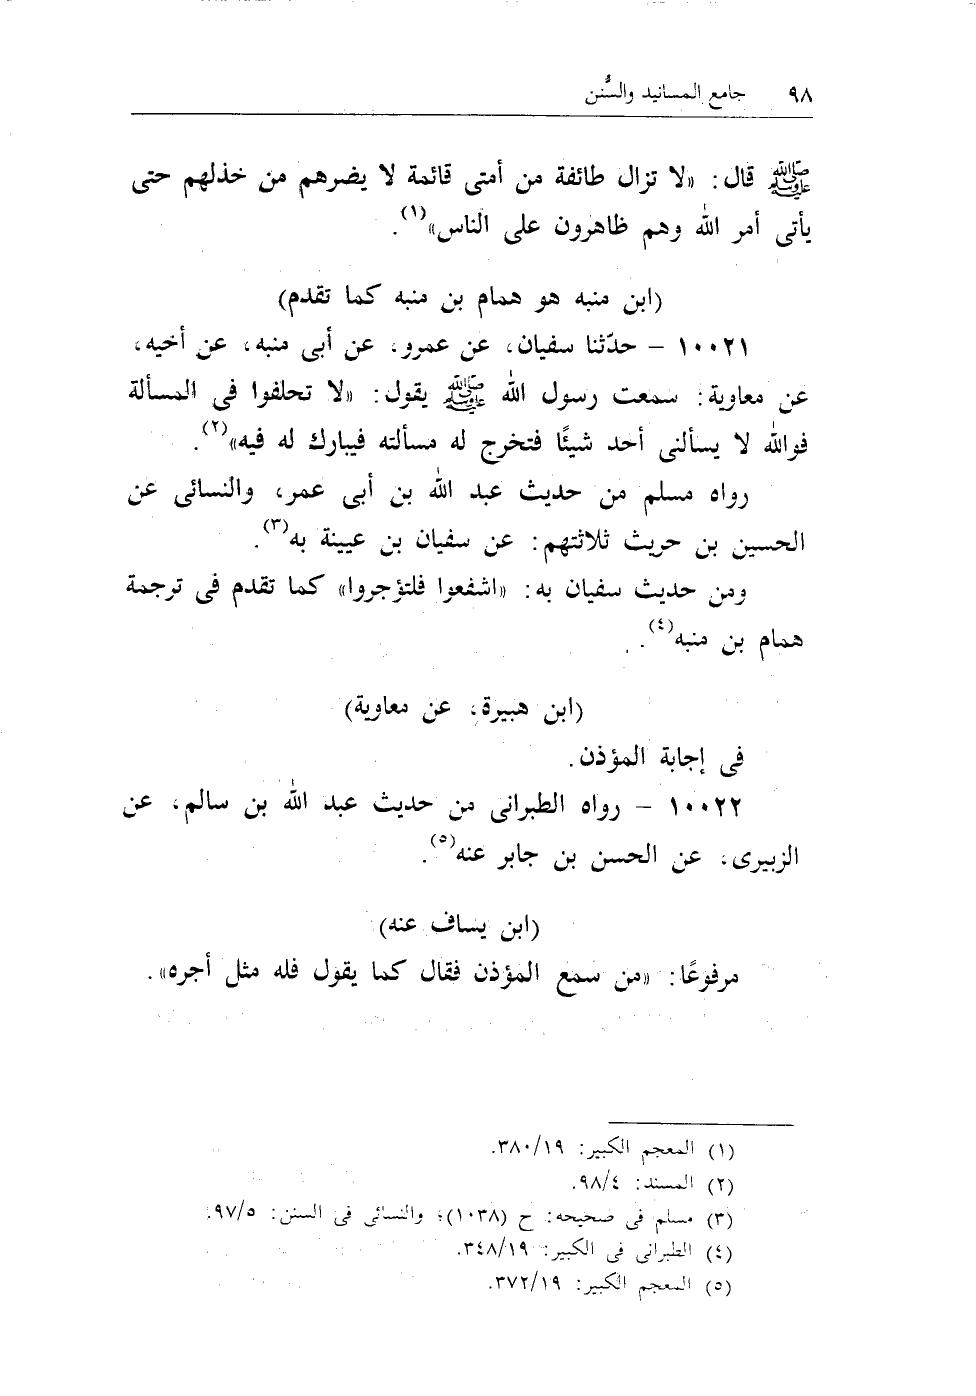 ٩٨ جامع المسانيد والسُّنن
ﷺ قال: «لا تزال طائفة من أمتى قائمة لا يضرهم من خذلهم حتى
يأتى أمر الله وهم ظاهرون على الناس»(١).
(ابن منبه هو همام بن منبه كما تقدم)
١٠٠٢١ - حدّثنا سفيان، عن عمرو، عن أبى منبه، عن أخيه،
عن معاوية: سمعت رسول الله ﷺ يقول: «لا تحلفوا فى المسألة
فوالله لا يسألنى أحد شيئًا فتخرج له مسألته فيبارك له فيه»(٢).
رواه مسلم من حديث عبد الله بن أبى عمر، والنسائى عن
الحسين بن حريث ثلاثتهم: عن سفيان بن عيينة به(٣).
ومن حديث سفيان به: «اشفعوا فلتؤجروا» كما تقدم فى ترجمة
همام بن منبه(٤).
(ابن هبيرة، عن معاوية)
فى إجابة المؤذن.
١٠٠٢٢ - رواه الطبرانى من حديث عبد الله بن سالم، عن
الزبيرى، عن الحسن بن جابر عنه(٥).
(ابن يساف عنه)
مرفوعًا: «من سمع المؤذن فقال كما يقول فله مثل أجره».
(١) المعجم الكبير: ٣٨٠/١٩.
(٢) المسند: ٩٨/٤.
(٣) مسلم فى صحيحه: ح (١٠٣٨)؛ والنسائى فى السنن: ٩٧/٥.
(٤) الطبرانى فى الكبير: ٣٤٨/١٩.
(٥) المعجم الكبير: ٣٧٢/١٩.